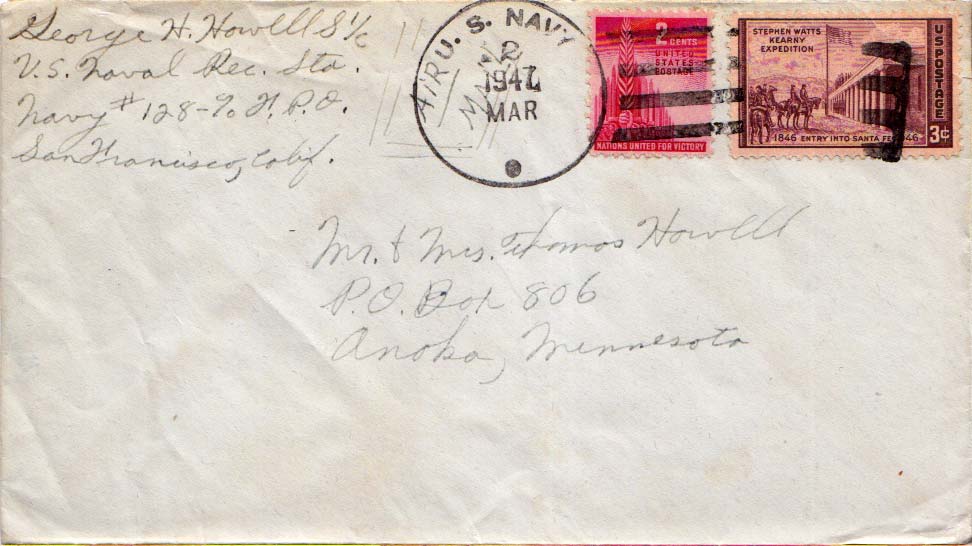 George H. Howell S 1/c
U.S. Naval Rec. Sta.
Navy # 128 - % F.P.O.
San Francisco, Calif.
U. S. NAVY
2
1947
MAR
2 CENTS
UNITED
STATES
POSTAGE
NATIONS UNITED FOR VICTORY
STEPHEN WATTS
KEARNY
EXPEDITION
US POSTAGE
3¢
1846 ENTRY INTO SANTA FE
Mr. & Mrs. Thomas Howell
P.O. Box 806
Anoka, Minnesota